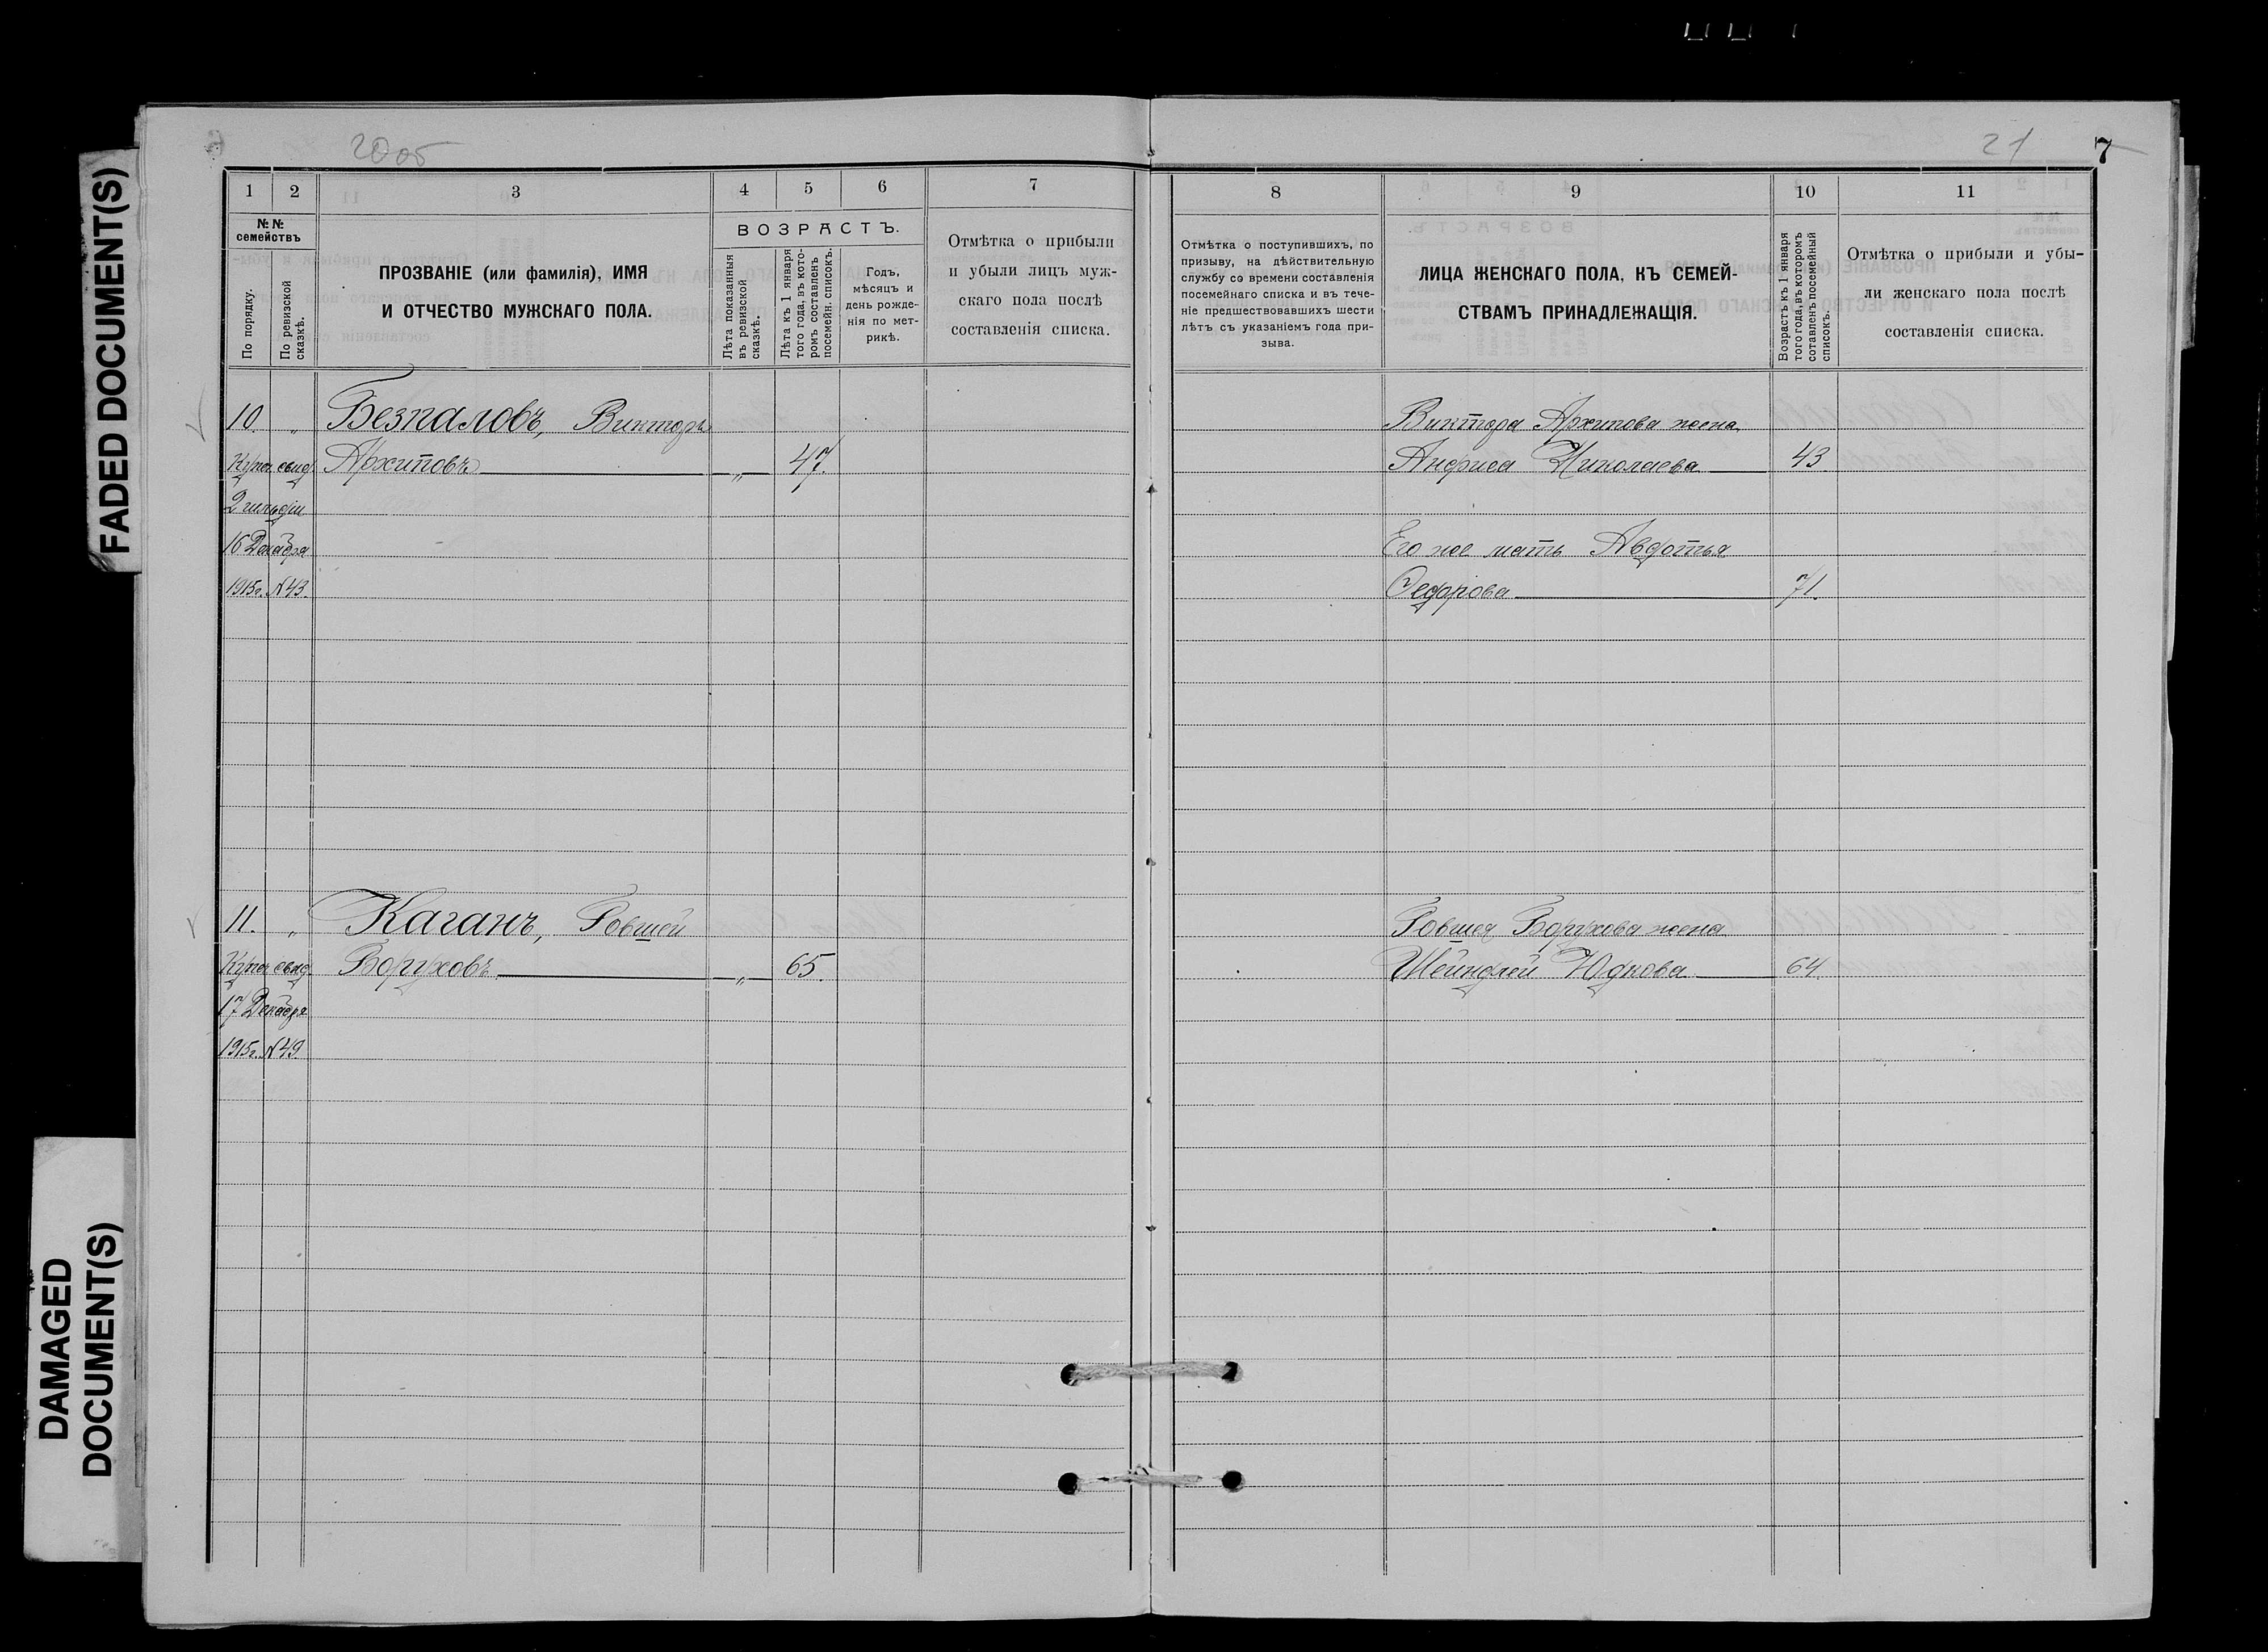 FADED DOCUMENT(S)
DAMAGED
DOCUMENT(S)
20об
21
7
1 2 3 4 5 6 7
№№
семействъ
По порядку.
По ревизской
сказкѣ.
ПРОЗВАНІЕ (или фамилія), ИМЯ
И ОТЧЕСТВО МУЖСКАГО ПОЛА.
ВОЗРАСТЪ.
Лѣта показанныя
въ ревизской
сказкѣ.
Лѣта къ 1 января
того года, въ кото-
ромъ составленъ
посемейн. списокъ.
Годъ,
мѣсяцъ и
день рожде-
нія по мет-
рикѣ.
Отмѣтка о прибыли
и убыли лицъ муж-
скаго пола послѣ
составленія списка.
10. „ Безпаловъ, Викторъ
Купеч. свид. Архиповъ „ 47.
2 гильдіи
16 Декабря
1915г. №43.
11. „ Каганъ, Ровшей
Купеч. свид. Боруховъ „ 65.
17 Декабря
1915г. №49.
8 9 10 11
Отмѣтка о поступившихъ, по
призыву, на дѣйствительную
службу со времени составленія
посемейнаго списка и въ тече-
ніе предшествовавшихъ шести
лѣтъ съ указаніемъ года при-
зыва.
ЛИЦА ЖЕНСКАГО ПОЛА, КЪ СЕМЕЙ-
СТВАМЪ ПРИНАДЛЕЖАЩІЯ.
Возрастъ къ 1 января
того года, въ которомъ
сотавленъ посемейный
списокъ.
Отмѣтка о прибыли и убы-
ли женскаго пола послѣ
составленія списка.
Виктора Архипова жена
Анфиса Николаева 43
Его же мать Авдотья
Федорова 71.
Ровшея Борухова жена
Шейндлей Юдкова 64.